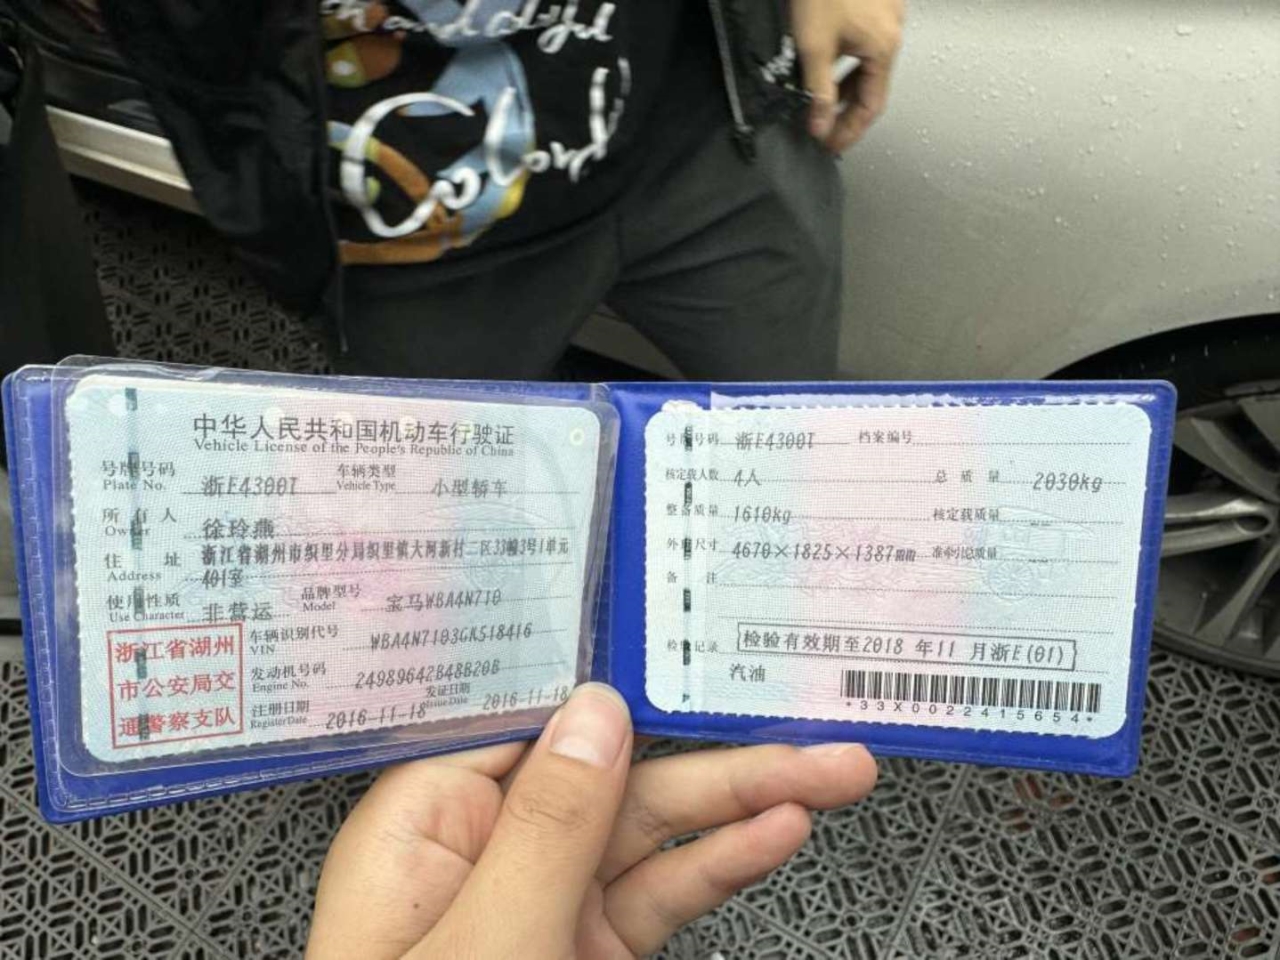 Colorful
中华人民共和国机动车行驶证
Vehicle License of the People's Republic of China
号牌号码 浙E4300T 车辆类型 小型轿车
Plate No. Vehicle Type
所有人 徐玲燕
Owner
住址 浙江省湖州市织里分局织里镇大河新村二区33幢3号1单元
Address 401室
使用性质 非营运 品牌型号 宝马WBA4N710
Use Character Model
浙江省湖州
市公安局交
通警察支队
车辆识别代号 WBA4N7103GK518416
VIN
发动机号码 24989642B48B20B
Engine No.
注册日期 2016-11-18 发证日期 2016-11-18
Register Date Issue Date
号牌号码 浙E4300T 档案编号
核定载人数 4人 总质量 2030kg
整备质量 1610kg 核定载质量 --
外廓尺寸 4670×1825×1387mm 准牵引总质量 --
备注
检验记录 检验有效期至2018 年11 月浙E(01)
汽油
*33X0022415654*